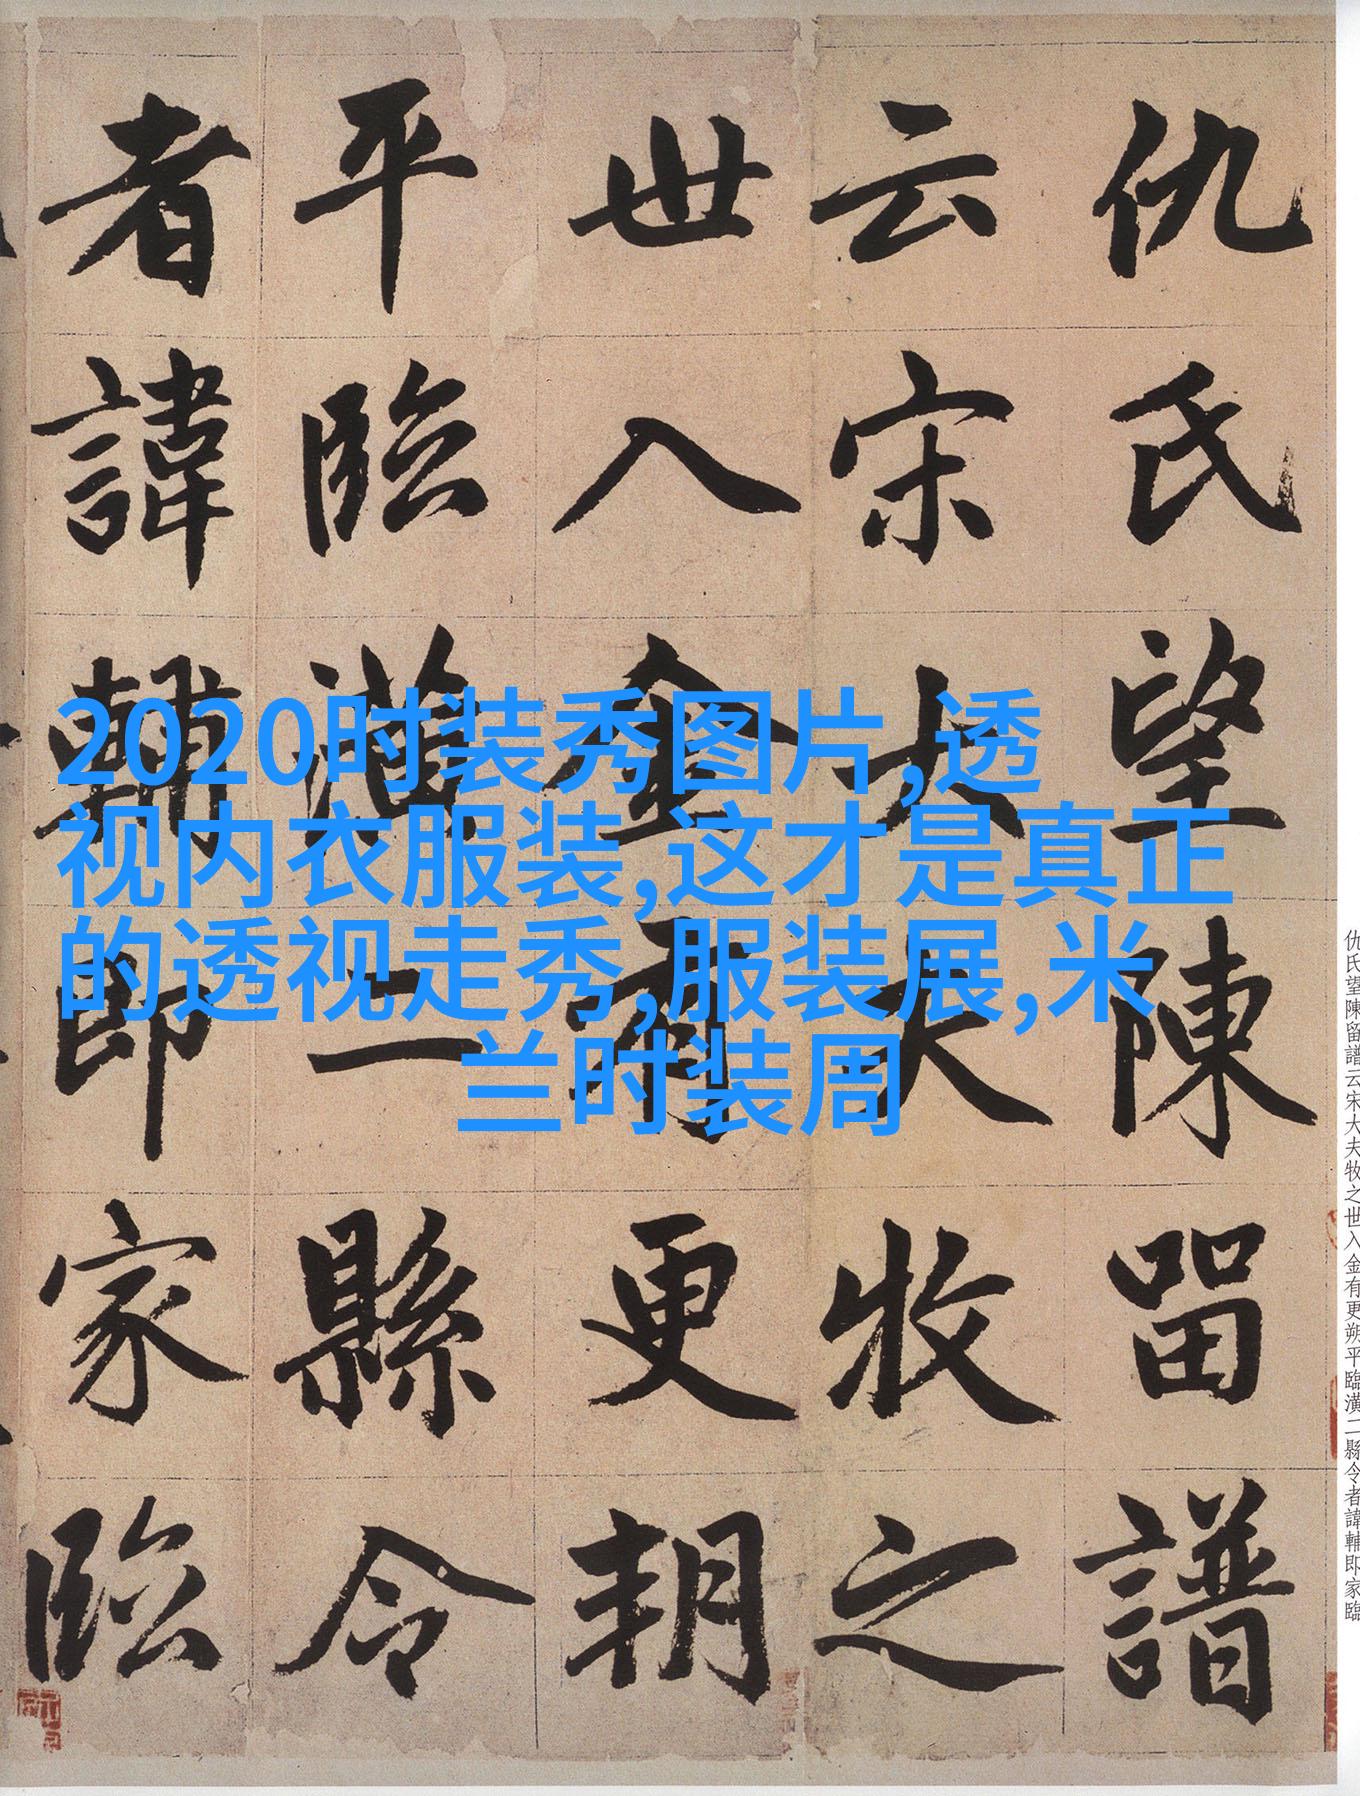 仇氏望陳留譜
云宋大夫牧之
世入金有更朔
平臨潢二縣令
者諱輔即家臨
2020时装秀图片,透
视内衣服装,这才是真正
的透视走秀,服装展,米
兰时装周
仇氏望陳留譜云宋大夫牧之世入金有更朔平臨潢二縣令者諱輔即家臨